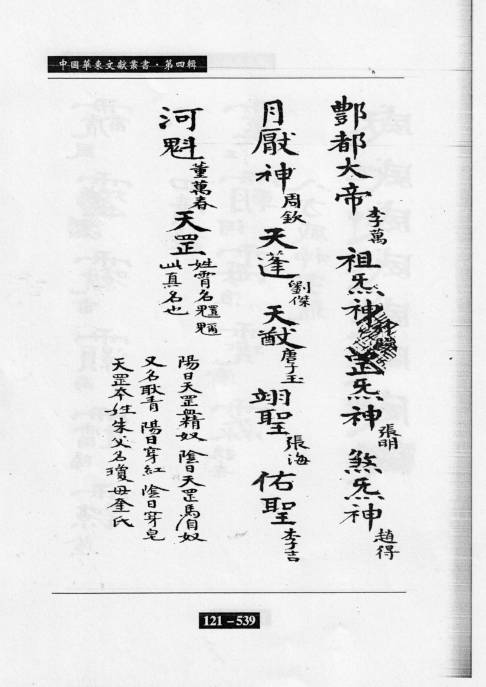 中國華東文獻叢書·第四輯
酆都大帝 李萬 祖炁神 罡炁神 張明 煞炁神 趙得
月厭神 周欽 天蓬 劉傑 天猷 唐子玉 翊聖 張海 佑聖 李吉
河魁 董萬春 天罡 姓霄名
此真名也
陽日天罡 精奴 陰日天罡馬自奴
又名耿青 陽日穿紅 陰日穿皂
天罡本姓朱父名瓊母奎氏
121-539